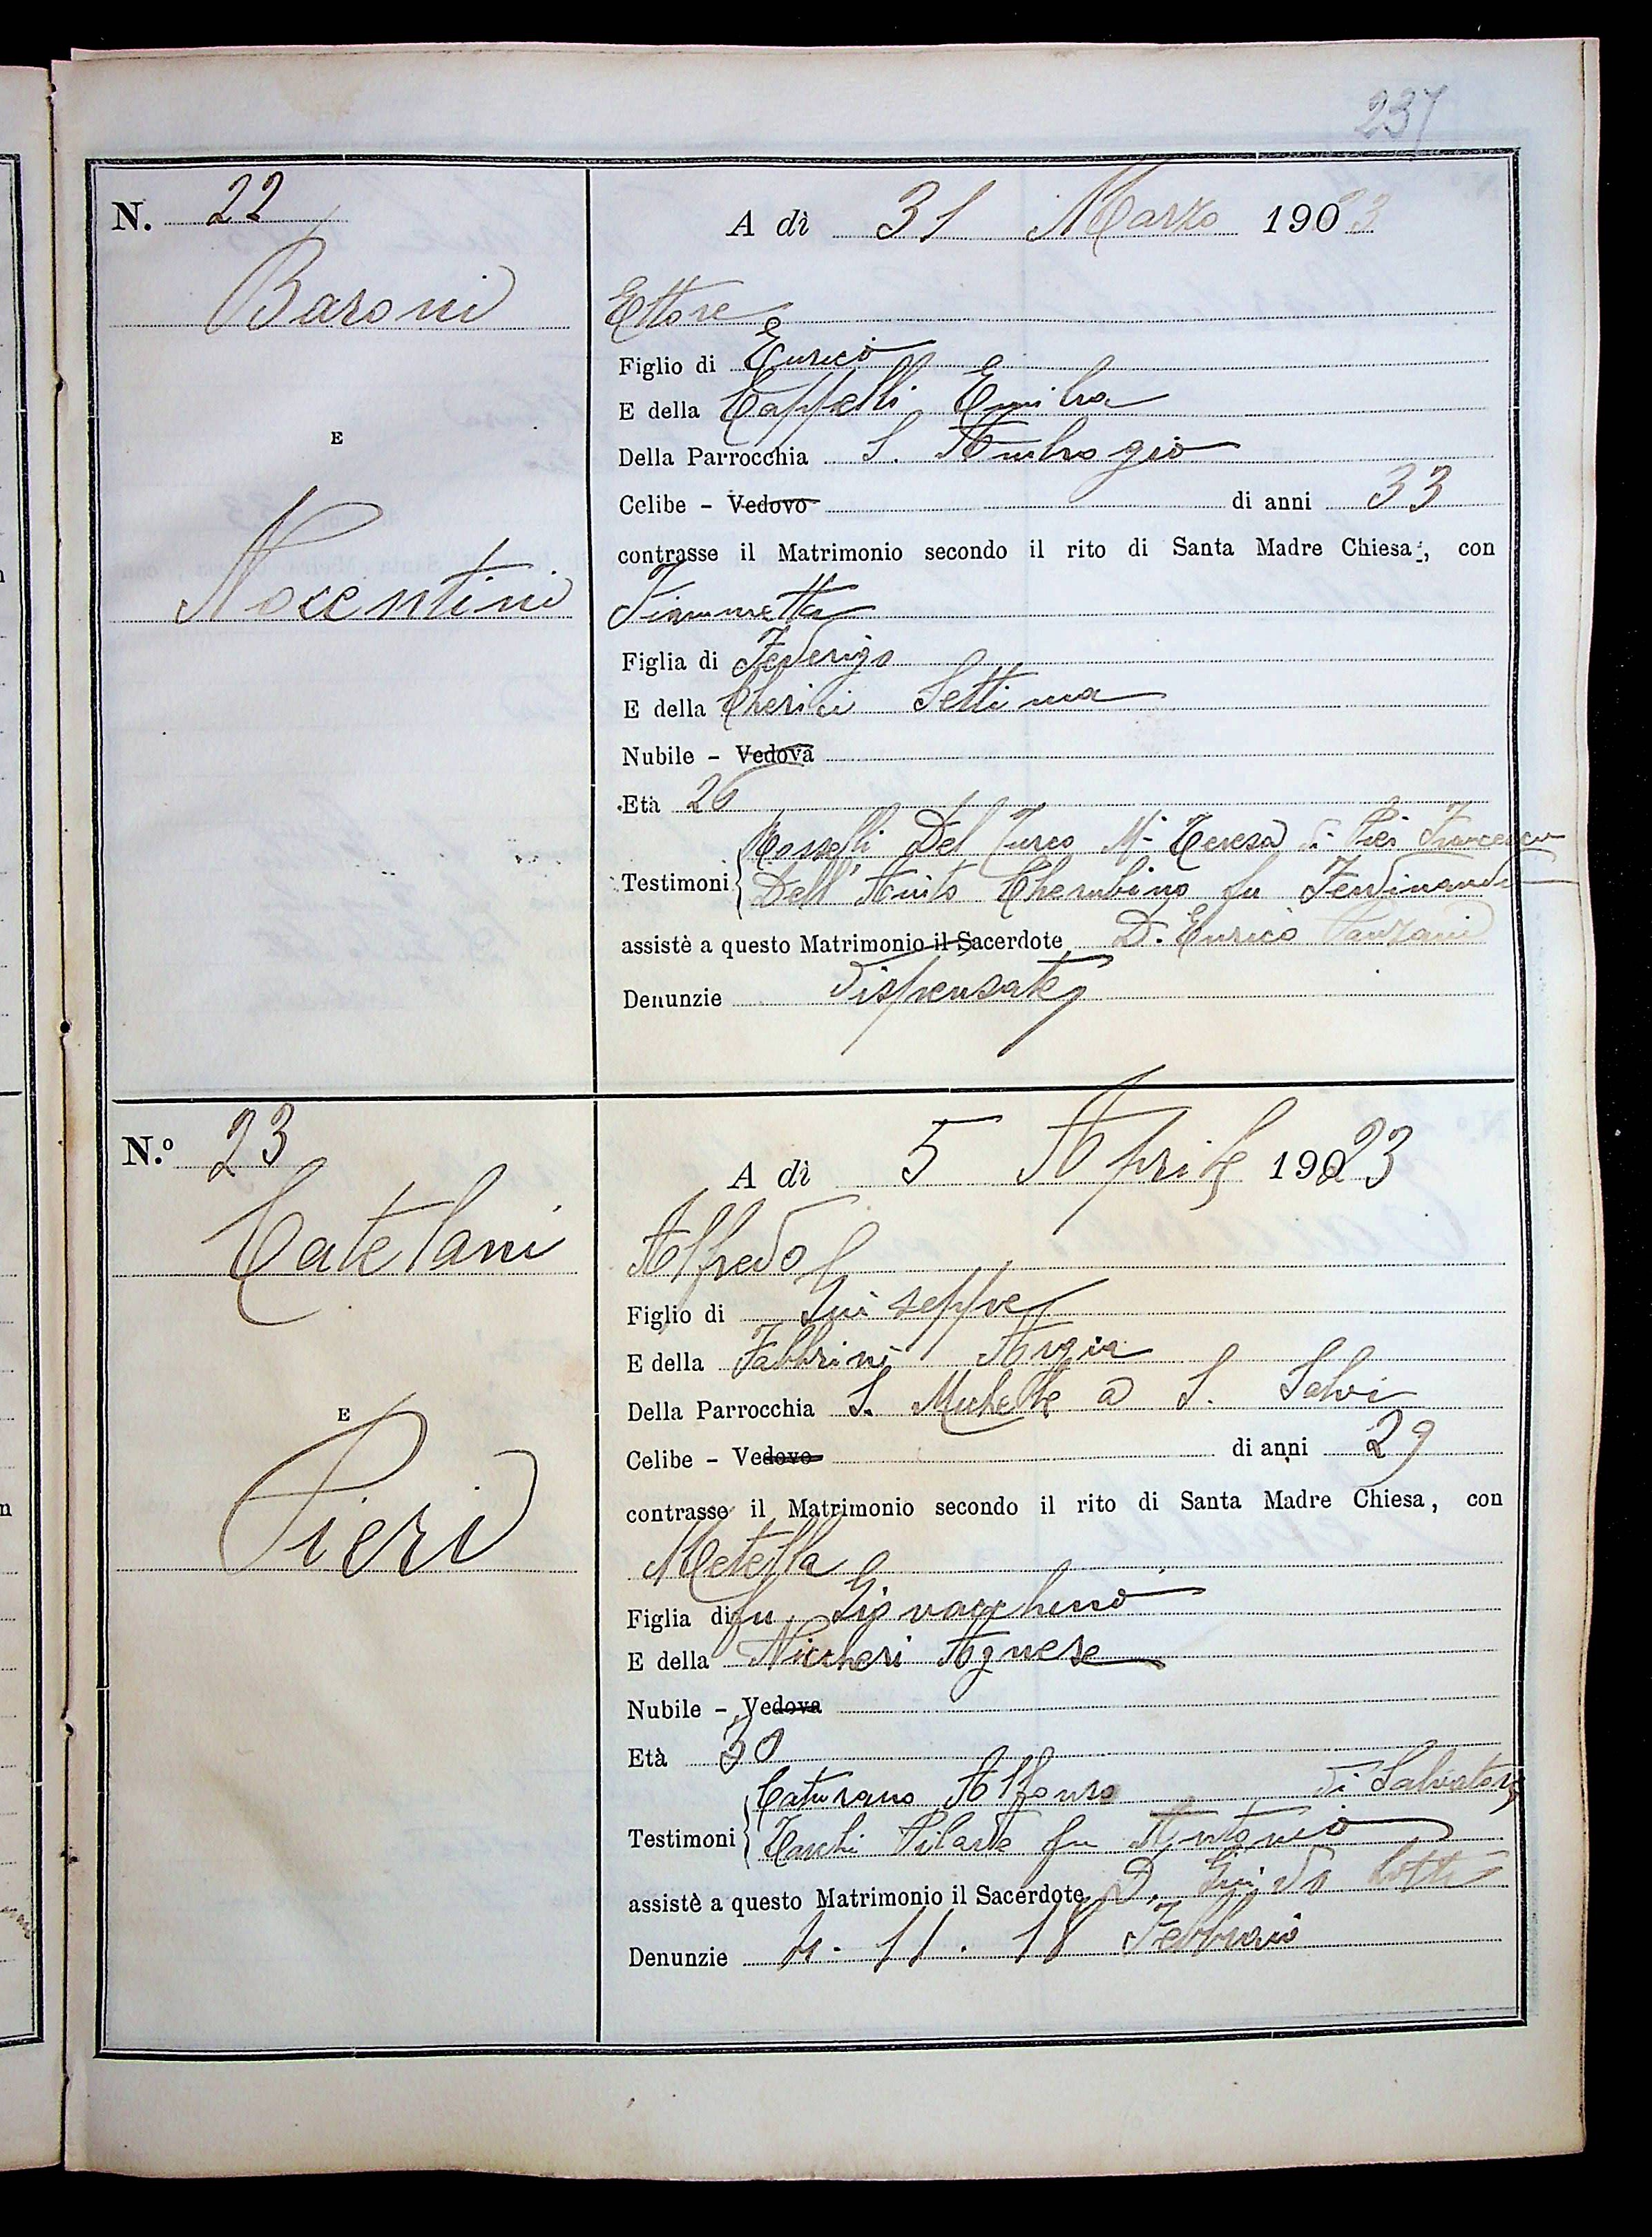 237
N. 22
A dì 31 Marzo 1903
Baroni
Ettore
Figlio di Enrico
E della Cappelli Emilia
E
Della Parrocchia S. Ambrogio
Celibe - Vedovo di anni 33
contrasse il Matrimonio secondo il rito di Santa Madre Chiesa, con
Nocentini
Fiammetta
Figlia di Federigo
E della Cherici Settima
Nubile - Vedova
Età 26
Testimoni Rosselli Del Turco Mª Teresa di Pier Francesco
Dell' Cherubino fu Ferdinando
assistè a questo Matrimonio il Sacerdote D. Enrico
Denunzie dispensate
N.º 23
A dì 5 Aprile 19023
Catelani
Alfredo
Figlio di Giuseppe
E della Fabbrini Argia
Della Parrocchia S. Michele a S. Salvi
E
Celibe - Vedovo di anni 29
contrasse il Matrimonio secondo il rito di Santa Madre Chiesa, con
Pieri
Metella
Figlia di fu Giovacchino
E della Niccheri Agnese
Nubile - Vedova
Età 30
Testimoni Caturano Alfonso di Salvatore
fu Antonio
assistè a questo Matrimonio il Sacerdote D. Guido Lotti
Denunzie 4. 11. 18 Febbraio